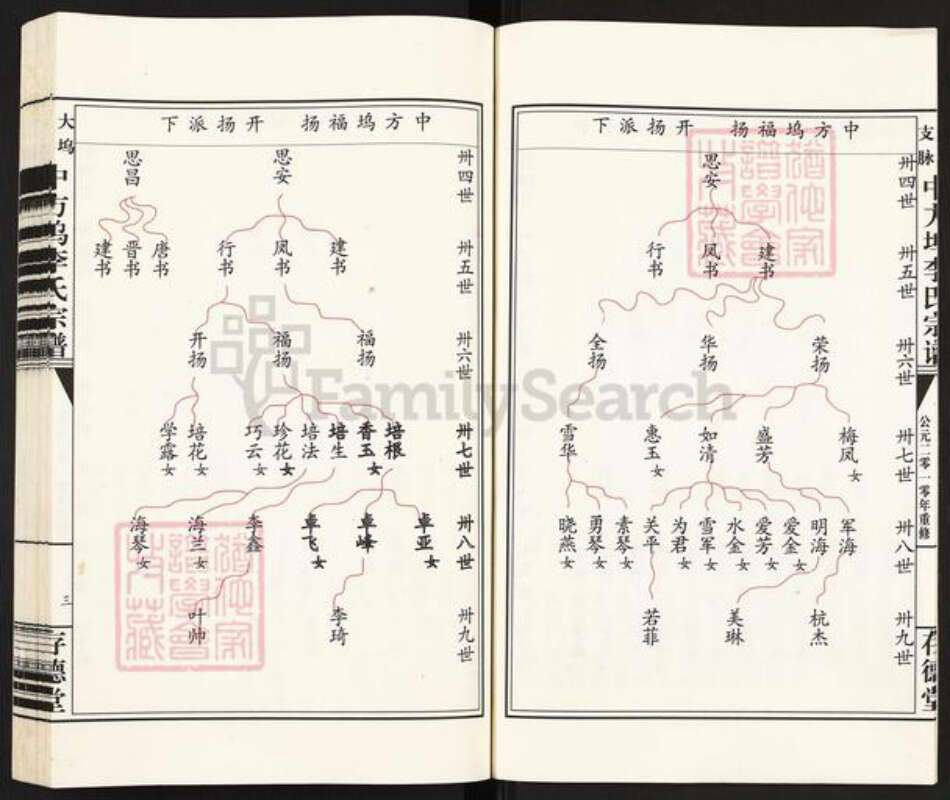 支脉
中方坞李氏宗谱
公元二零一零年重修
存德堂
中方坞福扬 开扬派下
卅四世
思安
卅五世
建书 凤书 行书
卅六世
荣扬 华扬 全扬
卅七世
梅凤女 盛芳 如清 惠玉女 雪华
卅八世
军海 明海 爱金女 爱芳女 水金女 雪军女 为君女 关平 素琴女 勇琴女 晓燕女
卅九世
杭杰 美琳 若菲
中方坞福扬 开扬派下
卅四世
思安 思昌
卅五世
建书 凤书 行书 唐书 晋书 建书
卅六世
福扬 福扬 开扬
卅七世
培根 香玉女 培生 培法 珍花女 巧云女 培花女 学露女
卅八世
卓亚女 卓峰 卓飞女 李鑫 海兰女 海琴女
卅九世
李琦 叶帅
大坞
中方坞李氏宗谱
三
存德堂
FamilySearch